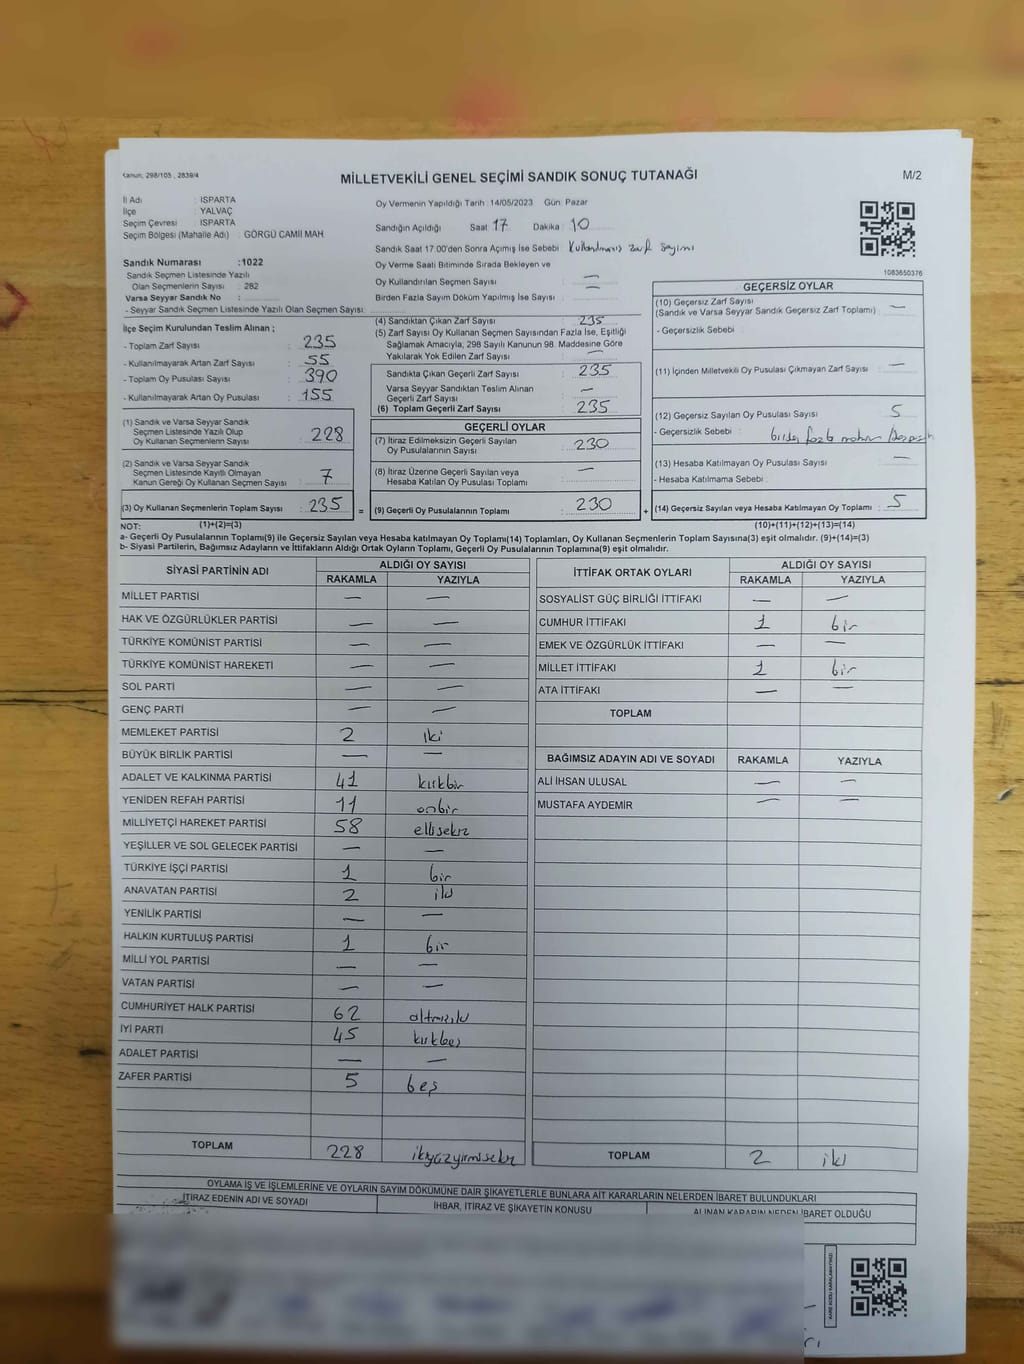 Kanun: 298/105 , 2839/4
MİLLETVEKİLİ GENEL SEÇİMİ SANDIK SONUÇ TUTANAĞI
M/2
İl Adı : ISPARTA
İlçe : YALVAÇ
Seçim Çevresi : ISPARTA
Seçim Bölgesi (Mahalle Adı) : GÖRGÜ CAMİİ MAH.
Sandık Numarası :1022
Sandık Seçmen Listesinde Yazılı
Olan Seçmenlerin Sayısı : 282
Varsa Seyyar Sandık No :
- Seyyar Sandık Seçmen Listesinde Yazılı Olan Seçmen Sayısı:
Oy Vermenin Yapıldığı Tarih : 14/05/2023 Gün: Pazar
Sandığın Açıldığı Saat : 17 Dakika : 10
Sandık Saat 17.00'den Sonra Açımış İse Sebebi : Kullanılmamış zarf sayımı
Oy Verme Saati Bitiminde Sırada Bekleyen ve
Oy Kullandırılan Seçmen Sayısı : —
Birden Fazla Sayım Döküm Yapılmış İse Sayısı : —
1083650376
İlçe Seçim Kurulundan Teslim Alınan ;
- Toplam Zarf Sayısı : 235
- Kullanılmayarak Artan Zarf Sayısı : 55
- Toplam Oy Pusulası Sayısı : 390
- Kullanılmayarak Artan Oy Pusulası : 155
(1) Sandık ve Varsa Seyyar Sandık
Seçmen Listesinde Yazılı Olup
Oy Kullanan Seçmenlerin Sayısı : 228
(2) Sandık ve Varsa Seyyar Sandık
Seçmen Listesinde Kayıtlı Olmayan
Kanun Gereği Oy Kullanan Seçmen Sayısı : 7
(3) Oy Kullanan Seçmenlerin Toplam Sayısı : 235 =
(4) Sandıktan Çıkan Zarf Sayısı : 235
(5) Zarf Sayısı Oy Kullanan Seçmen Sayısından Fazla İse, Eşitliği
Sağlamak Amacıyla, 298 Sayılı Kanunun 98. Maddesine Göre
Yakılarak Yok Edilen Zarf Sayısı : —
Sandıkta Çıkan Geçerli Zarf Sayısı : 235
Varsa Seyyar Sandıktan Teslim Alınan
Geçerli Zarf Sayısı : —
(6) Toplam Geçerli Zarf Sayısı : 235
GEÇERLİ OYLAR
(7) İtiraz Edilmeksizin Geçerli Sayılan
Oy Pusulalarının Sayısı : 230
(8) İtiraz Üzerine Geçerli Sayılan veya
Hesaba Katılan Oy Pusulası Toplamı : —
(9) Geçerli Oy Pusulalarının Toplamı : 230 +
GEÇERSİZ OYLAR
(10) Geçersiz Zarf Sayısı
(Sandık ve Varsa Seyyar Sandık Geçersiz Zarf Toplamı) : —
- Geçersizlik Sebebi :
(11) İçinden Milletvekili Oy Pusulası Çıkmayan Zarf Sayısı : —
(12) Geçersiz Sayılan Oy Pusulası Sayısı : 5
- Geçersizlik Sebebi : birden fazla mühür
(13) Hesaba Katılmayan Oy Pusulası Sayısı : —
- Hesaba Katılmama Sebebi :
(14) Geçersiz Sayılan veya Hesaba Katılmayan Oy Toplamı : 5
NOT: (1)+(2)=(3) (10)+(11)+(12)+(13)=(14)
a- Geçerli Oy Pusulalarının Toplamı(9) ile Geçersiz Sayılan veya Hesaba Katılmayan Oy Toplamı(14) Toplamları, Oy Kullanan Seçmenlerin Toplam Sayısına(3) eşit olmalıdır. (9)+(14)=(3)
b- Siyasi Partilerin, Bağımsız Adayların ve İttifakların Aldığı Ortak Oyların Toplamı, Geçerli Oy Pusulalarının Toplamına(9) eşit olmalıdır.
SİYASİ PARTİNİN ADI ALDIĞI OY SAYISI
RAKAMLA YAZIYLA
MİLLET PARTİSİ — —
HAK VE ÖZGÜRLÜKLER PARTİSİ — —
TÜRKİYE KOMÜNİST PARTİSİ — —
TÜRKİYE KOMÜNİST HAREKETİ — —
SOL PARTİ — —
GENÇ PARTİ — —
MEMLEKET PARTİSİ 2 iki
BÜYÜK BİRLİK PARTİSİ — —
ADALET VE KALKINMA PARTİSİ 41 kırkbir
YENİDEN REFAH PARTİSİ 11 onbir
MİLLİYETÇİ HAREKET PARTİSİ 58 ellisekiz
YEŞİLLER VE SOL GELECEK PARTİSİ — —
TÜRKİYE İŞÇİ PARTİSİ 1 bir
ANAVATAN PARTİSİ 2 iki
YENİLİK PARTİSİ — —
HALKIN KURTULUŞ PARTİSİ 1 bir
MİLLİ YOL PARTİSİ — —
VATAN PARTİSİ — —
CUMHURİYET HALK PARTİSİ 62 altmışiki
İYİ PARTİ 45 kırkbeş
ADALET PARTİSİ — —
ZAFER PARTİSİ 5 beş
TOPLAM 228 ikiyüzyirmisekiz
İTTİFAK ORTAK OYLARI ALDIĞI OY SAYISI
RAKAMLA YAZIYLA
SOSYALİST GÜÇ BİRLİĞİ İTTİFAKI — —
CUMHUR İTTİFAKI 1 bir
EMEK VE ÖZGÜRLÜK İTTİFAKI — —
MİLLET İTTİFAKI 1 bir
ATA İTTİFAKI — —
TOPLAM
BAĞIMSIZ ADAYIN ADI VE SOYADI RAKAMLA YAZIYLA
ALİ İHSAN ULUSAL — —
MUSTAFA AYDEMİR — —
TOPLAM 2 iki
OYLAMA İŞ VE İŞLEMLERİNE VE OYLARIN SAYIM DÖKÜMÜNE DAİR ŞİKAYETLERLE BUNLARA AİT KARARLARIN NELERDEN İBARET BULUNDUKLARI
İTİRAZ EDENİN ADI VE SOYADI İHBAR, İTİRAZ VE ŞİKAYETİN KONUSU ALINAN KARARIN NEDEN İBARET OLDUĞU
KARE KODU KARALAMAYINIZ!